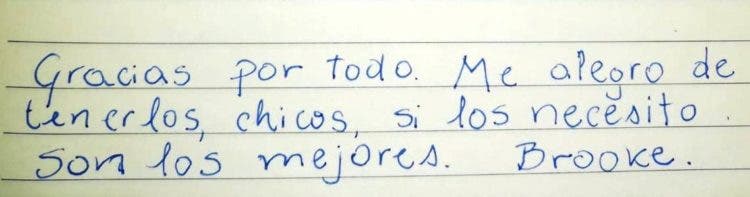 Gracias por todo. Me alegro de
tenerlos, chicos, si los necesito.
Son los mejores. Brooke.